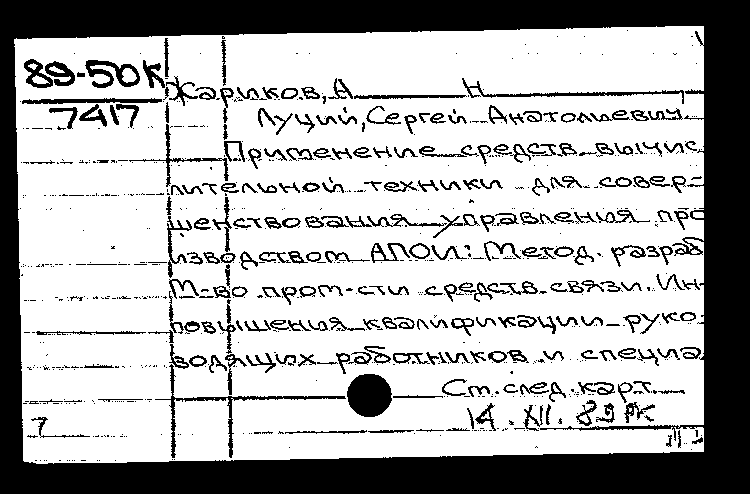 89-50К
7417
Жариков, А Н
Луций, Сергей Анатольевич
Применение средств вычис
лительной техники для совер-
шенствования управления про
изводством АПОИ: Метод. разраб
М-во пром-сти средств связи. Ин-
повышения квалификации руко-
водящих работников и специа
См. след. карт.
14.XII.89 РК
7